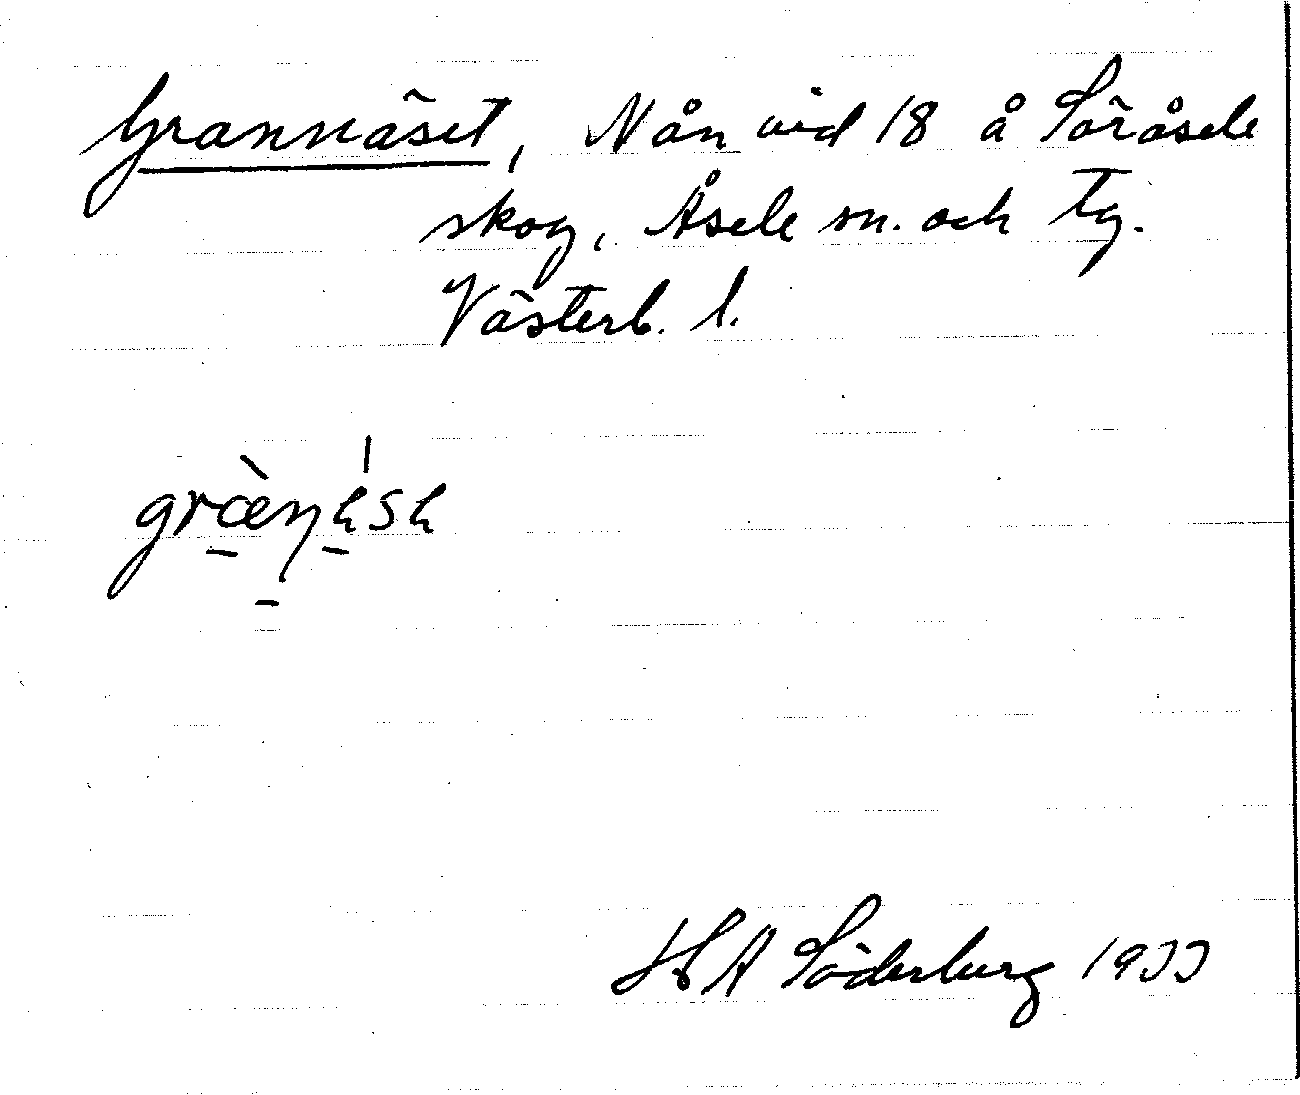 Grannäset, N ån vid 18 å Söråsele
skog, Åsele sn. och tg.
Västerb. l.
H A Söderburg 1933